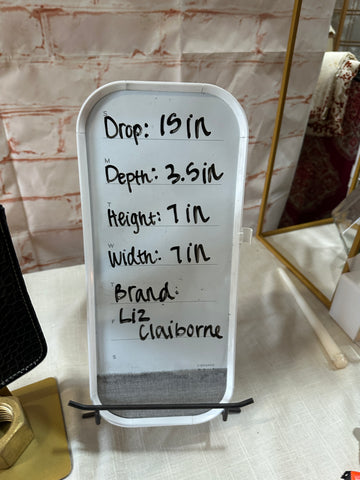 S
Drop: 15 in
M
Depth: 3.5 in
T
Height: 7 in
W
Width: 7 in
T
Brand:
F
Liz
Claiborne
S